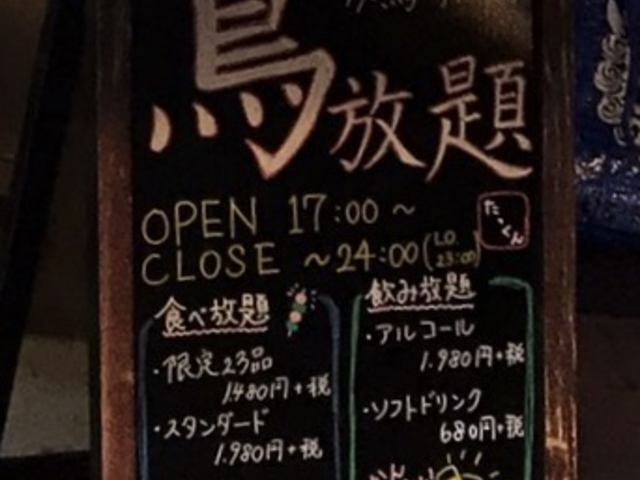 鳥放題
OPEN 17:00 ~
CLOSE ~24:00(L.O. 23:00)
たっくん
食べ放題
・限定23品
1,480円+税
・スタンダード
1,980円+税
飲み放題
・アルコール
1,980円+税
・ソフトドリンク
680円+税